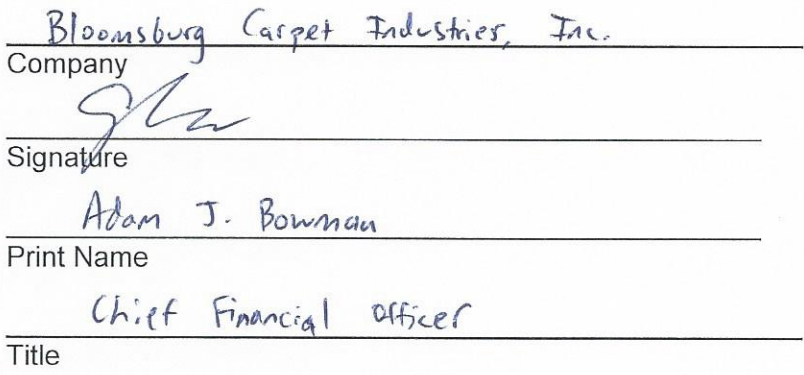 Bloomsburg Carpet Industries, Inc.
Company
Signature
Adam J. Bowman
Print Name
Chief Financial Officer
Title